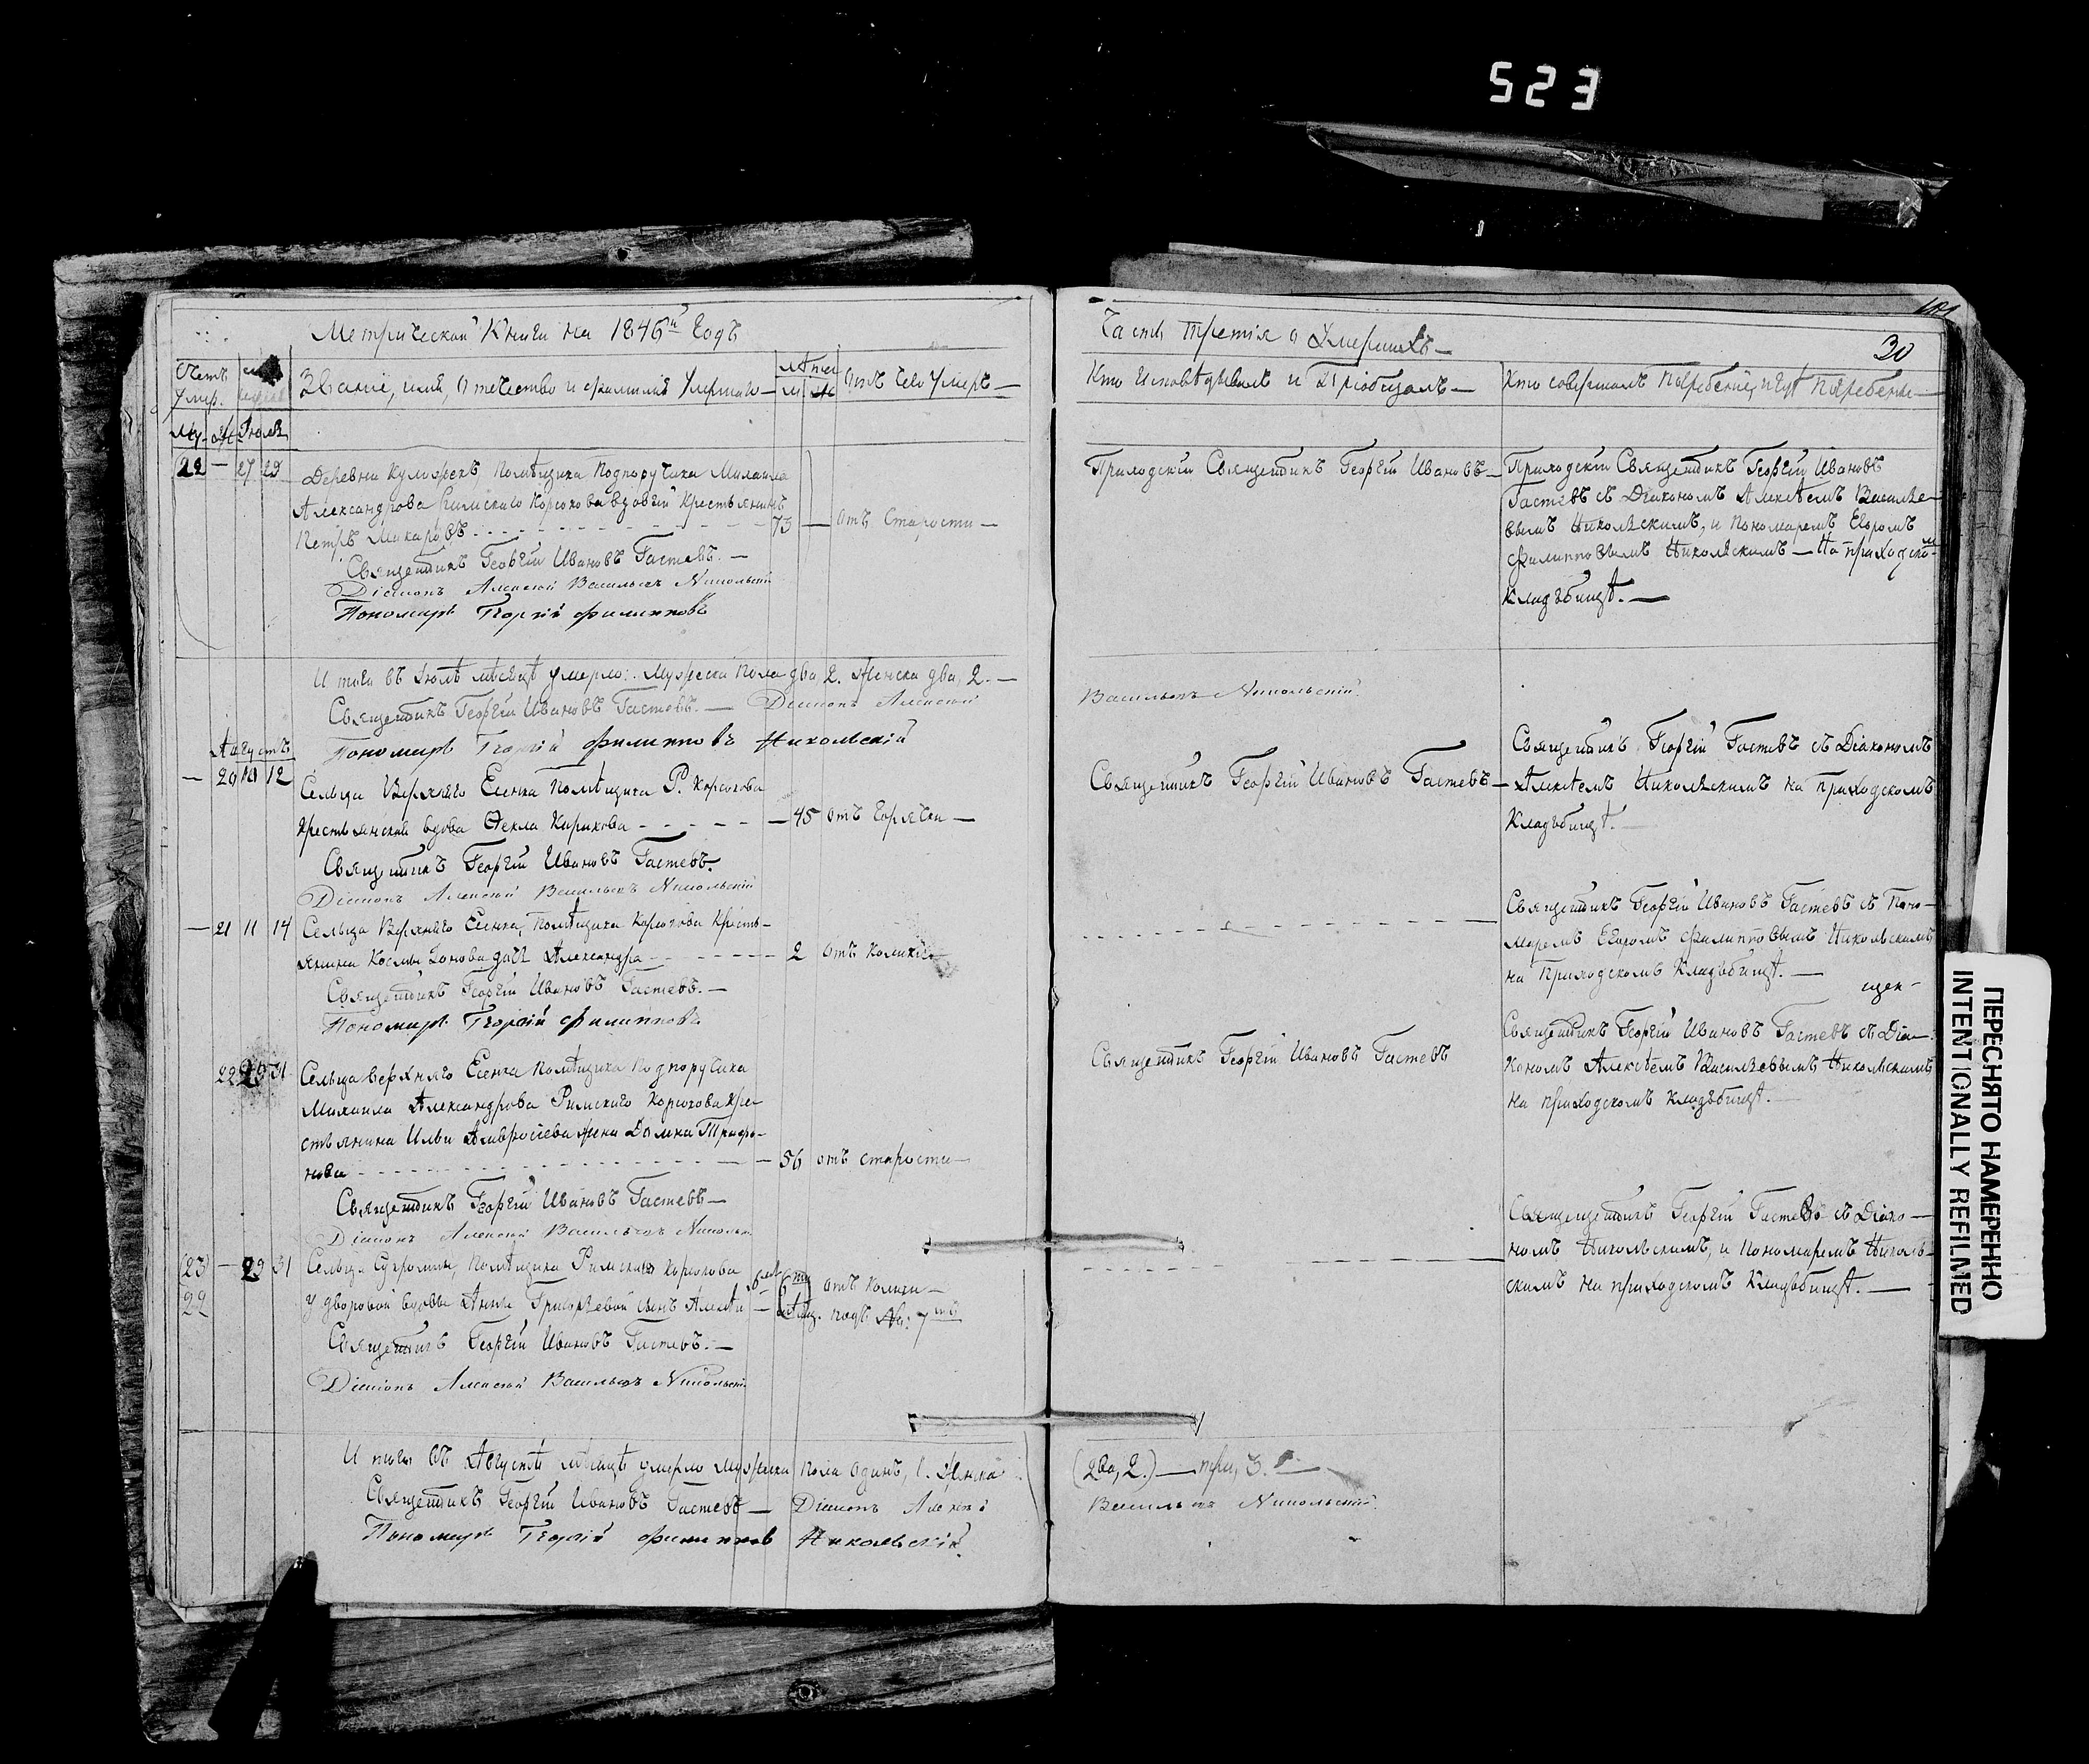 523
Метрической Книги на 1846й Годъ
Счетъ Умер.
Званіе, имя, отечество и фамилія Умершаго —
Лѣта
м. ж.
Отъ чего Умеръ —
Му. Ж. Іюля
22 — 27 29 Деревни Помѣщика Подпоручика Михаила
Александрова Римскаго Корсокова вдовый Крестьянинъ
Петръ Макаровъ - - - 73 — отъ Старости —
Священникъ Георгій Ивановъ Гастевъ. —
Діаконъ Алексѣй Васильевъ Никольскій
Пономарь Георгій Филипповъ
Итого въ Іюлѣ мѣсяцѣ умерло: Мужеска Пола два, 2. Женска два, 2. —
Священникъ Георгій Ивановъ Гастевъ. — Діаконъ Алексѣй
Пономарь Георгій Филипповъ Никольскій
Августъ
— 20 10 12 Сельца Верхняго Есенка Помѣщика Р. Корсокова
крестьянская вдова Ѳекла Карпова - - - — 45 отъ Горячки —
Священникъ Георгій Ивановъ Гастевъ.
Діаконъ Алексѣй Васильевъ Никольскій
— 21 11 14 Сельца Верхняго Есенка, Помѣщика Корсокова Кресть-
янина Космы дочь Александра - - - 2 отъ Колики
Священникъ Георгій Ивановъ Гастевъ. —
Пономарь Георгій Филипповъ
22 29 31 Сельца Верхняго Есенка Помѣщика Подпоручика
Михаила Александрова Римскаго Корсокова кре-
стьянина Ильи Амвросіева жена Домна Трифо-
нова - - - — 56 отъ старости —
Священникъ Георгій Ивановъ Гастевъ —
Діаконъ Алексѣй Васильевъ Никольск
(23) — 29 31 Сельца Помѣщика Римскаго Корсокова
22 У дворовой вдовы Анны Григорьевой сынъ Алексѣй — 6 отъ Колики —
Священникъ Георгій Ивановъ Гастевъ. —
Діаконъ Алексѣй Васильевъ Никольскій
Итого въ Августѣ мѣсяцѣ умерло Мужеска Пола Одинъ, 1. Женска
Священникъ Георгій Ивановъ Гастевъ — Діаконъ Алексѣй
Пономарь Георгій Филипповъ Никольскій
Часть Третія о Умершихъ —
30
Кто Исповѣдывалъ и Пріобщалъ —
Кто совершалъ Погребеніе, и гдѣ Погребены —
Приходскій Священникъ Георгій Ивановъ —
Приходскій Священникъ Георгій Ивановъ
Гастевъ съ Діакономъ Алексѣемъ Василье-
вымъ Никольскимъ, и Пономаремъ Егоромъ
Филипповымъ Никольскимъ — На приходском
Кладъбищѣ. —
Васильевъ Никольскій.
Священникъ Георгій Ивановъ Гастевъ —
Священникъ Георгій Гастевъ съ Діакономъ
Алексѣемъ Никольскимъ на Приходскомъ
Кладъбищѣ. —
Священникъ Георгій Ивановъ Гастевъ съ Поно-
маремъ Егоромъ Филипповымъ Никольскимъ
на Приходскомъ Кладъбищѣ. —
щен-
Священникъ Георгій Ивановъ Гастевъ
Священникъ Георгій Ивановъ Гастевъ съ Діа-
кономъ Алексѣемъ Васильевымъ Никольскимъ
на приходскомъ Кладъбищѣ. —
Священникъ Георгій Гастевъ съ Діако-
номъ Никольскимъ, и Пономаремъ Николь-
скимъ на приходскомъ Кладъбищѣ. —
(два, 2.) — три, 3. —
Васильевъ Никольскій.
ПЕРЕСНЯТО НАМЕРЕННО
INTENTIONALLY REFILMED